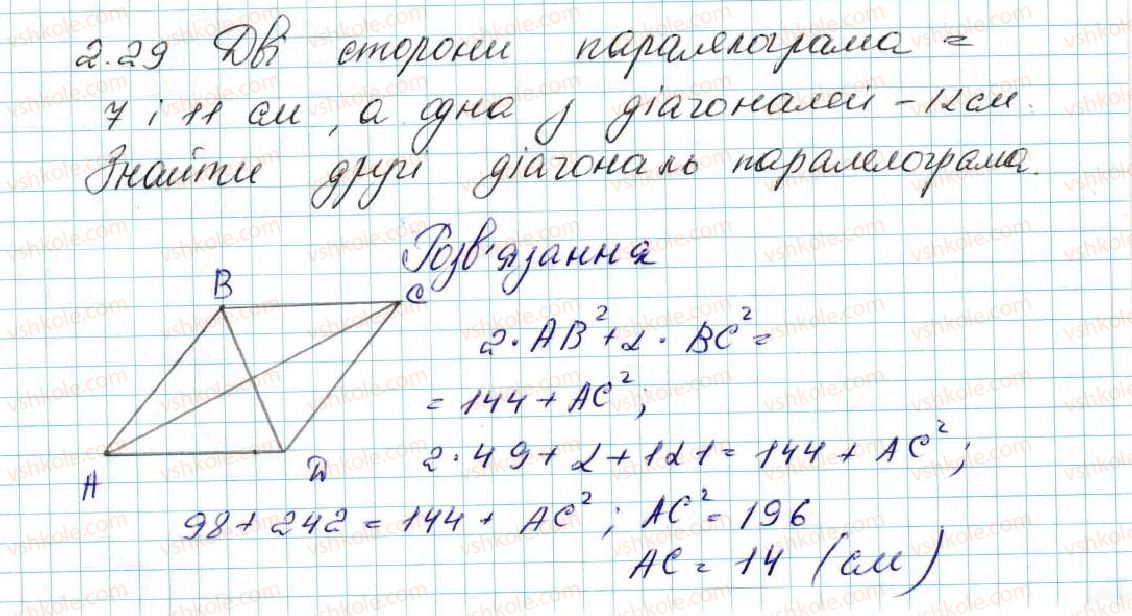 2.29 Дві сторони паралелограма =
7 і 11 см, а одна з діагоналей – 12 см.
Знайти другу діагональ паралелограма.
Розв'язання
B
C
A
D
2·AB²+2·BC²=
=144+AC²;
2·49+2+121=144+AC²;
98+242=144+AC²; AC²=196
AC=14 (см)
vshkole.com